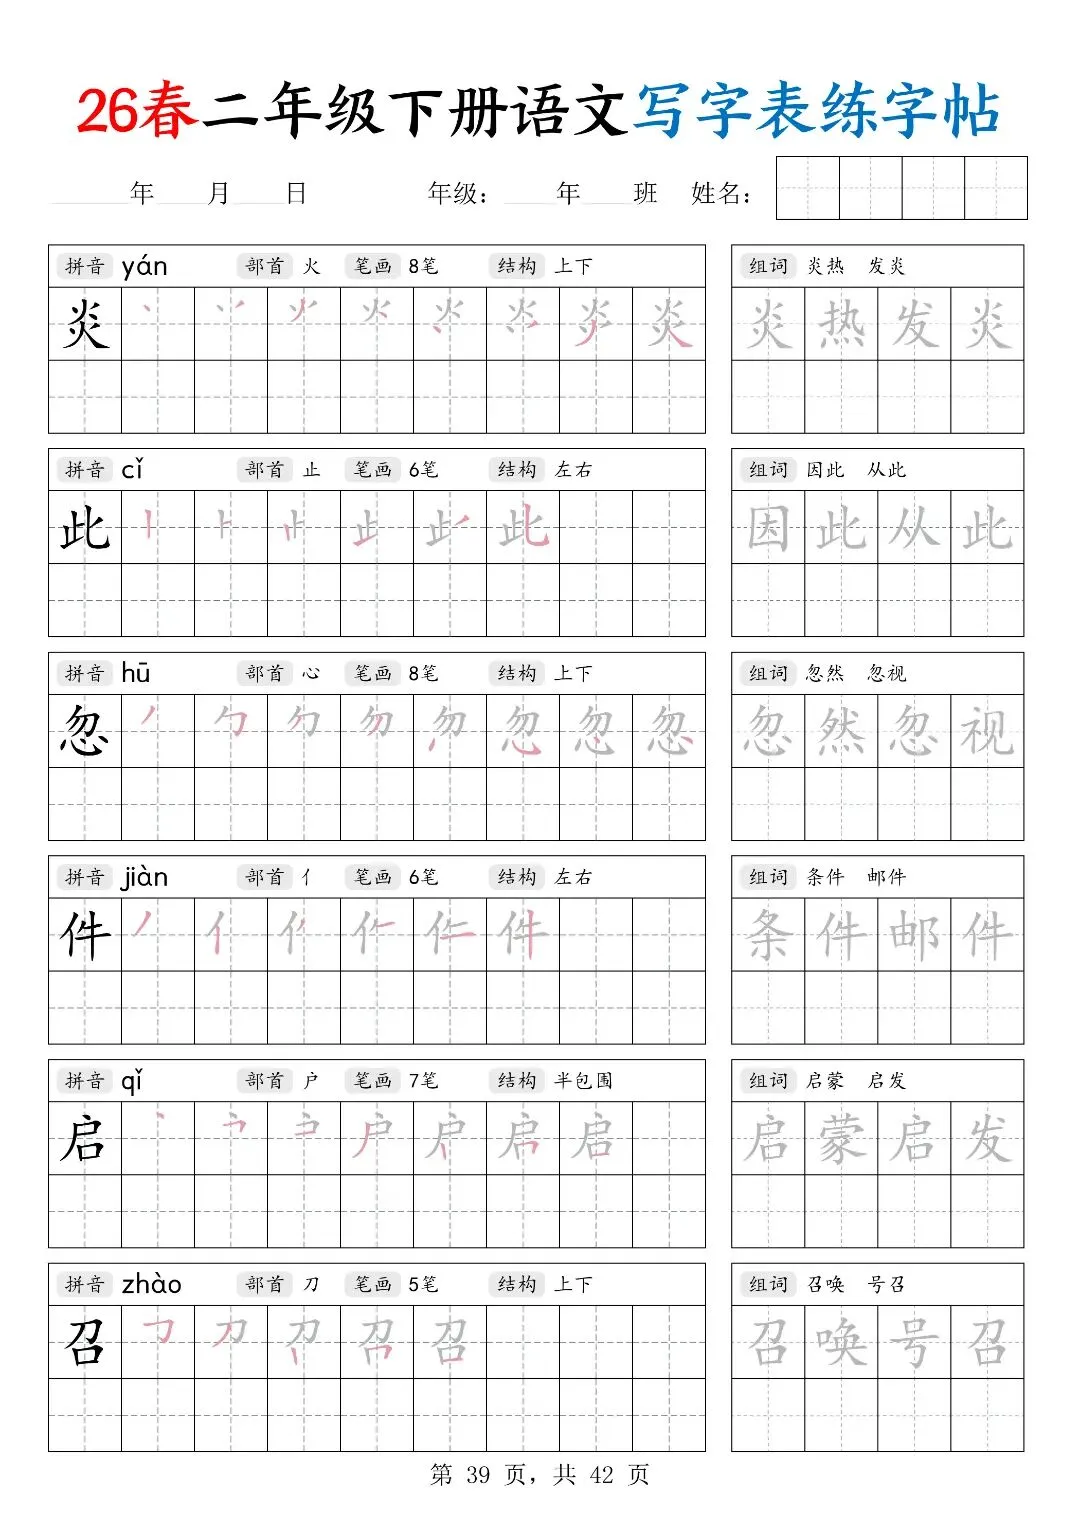 26春二年级下册语文写字表练字帖
年 月 日 年级： 年 班 姓名：
拼音 yán 部首 火 笔画 8笔 结构 上下 组词 炎热 发炎
炎 炎热发炎
拼音 cǐ 部首 止 笔画 6笔 结构 左右 组词 因此 从此
此 因此从此
拼音 hū 部首 心 笔画 8笔 结构 上下 组词 忽然 忽视
忽 忽然忽视
拼音 jiàn 部首 亻 笔画 6笔 结构 左右 组词 条件 邮件
件 条件邮件
拼音 qǐ 部首 户 笔画 7笔 结构 半包围 组词 启蒙 启发
启 启蒙启发
拼音 zhào 部首 刀 笔画 5笔 结构 上下 组词 召唤 号召
召 召唤号召
第 39 页，共 42 页